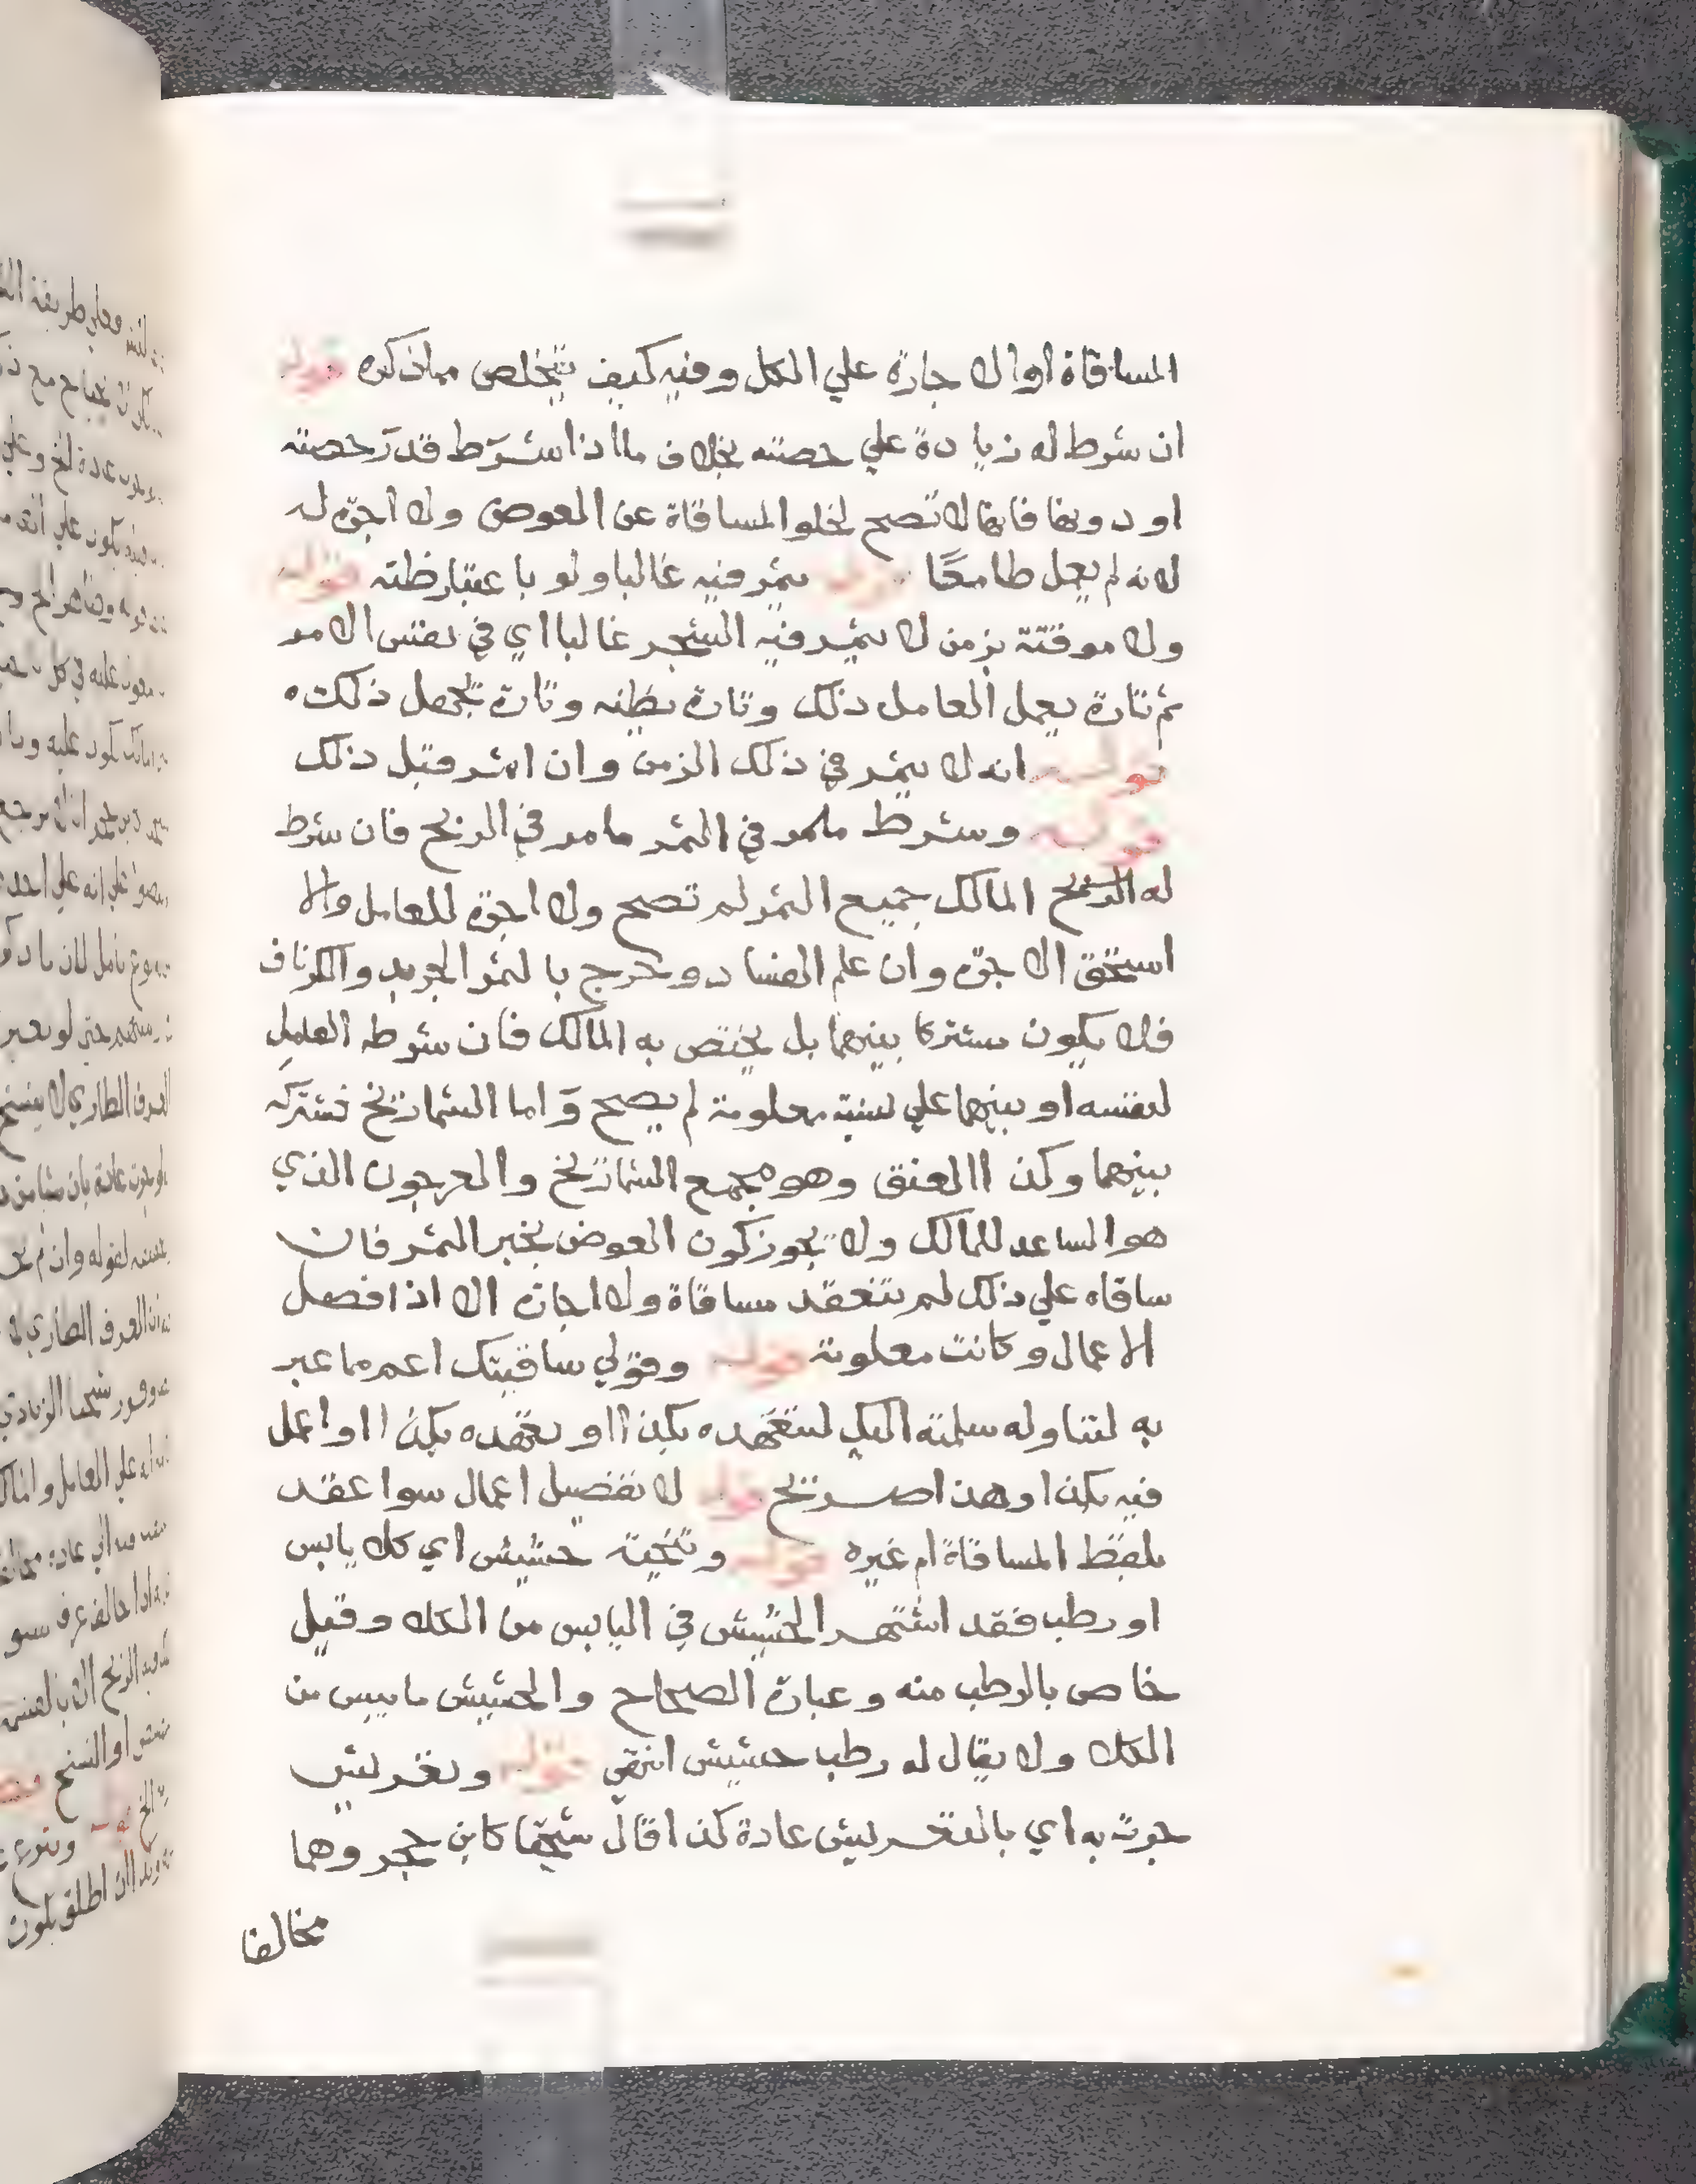 المساقاة او الاجارة علي الكل وفيه كيف يتخلص مماذكره قوله
ان شرط له زيادة علي حصته بخلاف ما اذا شرط قدر حصته
او دونها فانها لا تصح لخلو المساقاة عن العوض ولا اجرة له
لانه لم يعمل طامعا قوله يثمر فيه غالبا ولو باعتبار ظنه قوله
ولا موقتة بزمن لا يثمر فيه الشجر غالبا اي في نفس الامر
ثم تارة يعمل العامل ذلك وتارة يظنه وتارة يجهل ذلك
قوله انه لا يثمر في ذلك الزمن وان اثمر قبل ذلك
قوله وشرط مامر في الثمر ما مر في الربح فان شرط
له المالك جميع الثمر لم تصح ولا اجرة للعامل والا
استحق الاجرة وان علم الفساد وخرج بالثمر الجريد والكرناف
فلا يكون مشتركا بينهما بل يختص به المالك فان شرطه العامل
لنفسه او بينهما علي نسبة معلومة لم يصح واما الشماريخ فمشتركة
بينهما وكذا العنق وهو مجمع الشماريخ والعرجون الذي
هو الساعد للمالك ولا يجوز كون العوض بغير الثمر فان
ساقاه علي ذلك لم تنعقد مساقاة ولا اجارة الا اذا فصل
الاعمال وكانت معلومة قوله وقولي ساقيتك اعم مما عبر
به لتناوله سلمته اليك لتتعهده بكذا او تعهده بكذا او اعمل
فيه بكذا وهذا صريح قوله لا تفصيل اعمال سوا عقد
بلفظ المساقاة ام غيره قوله وتنحية حشيش اي كلا يابس
او رطب فقد اشتهر الحشيش في اليابس من الكلا وقيل
خاص بالرطب منه وعبارة الصحاح والحشيش ما يبس من
الكلا ولا يقال له رطب حشيش انتهي قوله وتعريش
جرت به اي بالتعريش عادة كذا قال شيخنا كابن حجر وهما
مخالفا